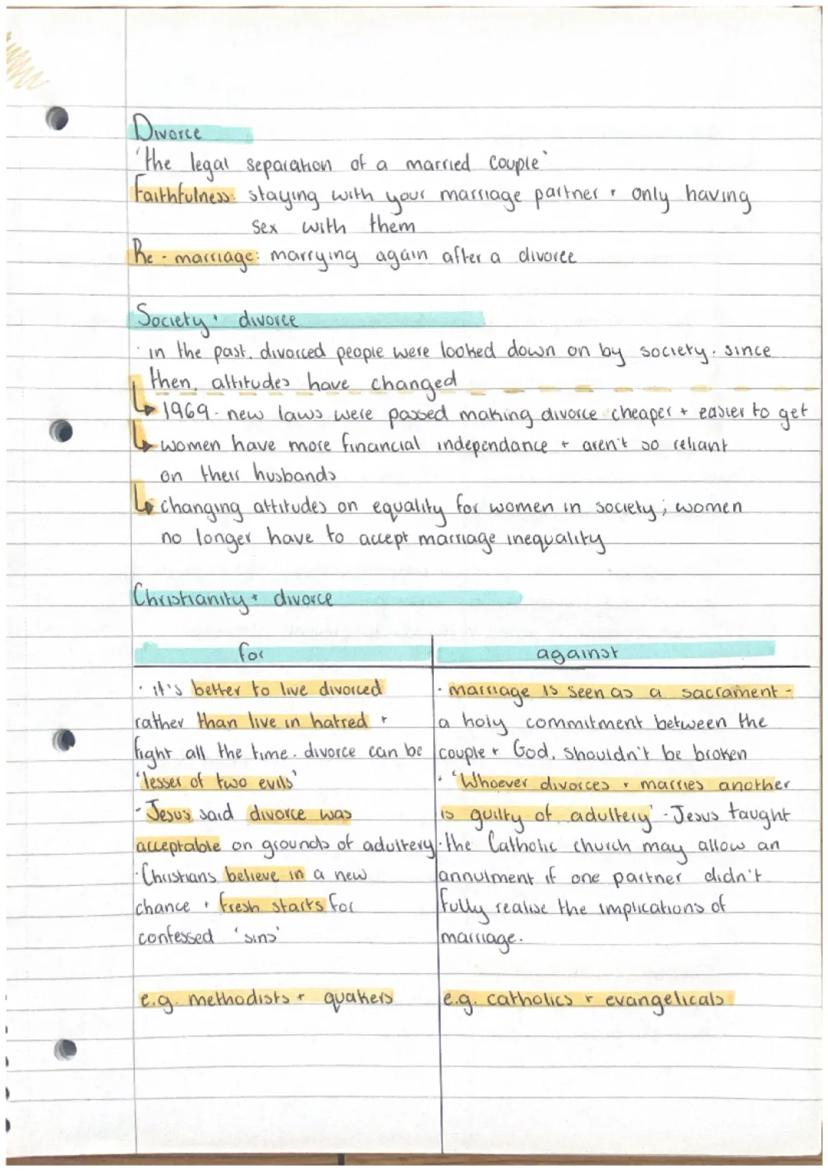 Divorce
'the legal separation of a married couple'
Faithfulness: staying with your marriage partner + only having
sex with them
Re-marriage: marrying again after a divorce
Society + divorce
· in the past, divorced people were looked down on by society. since
then, attitudes have changed
↳ 1969 - new laws were passed making divorce cheaper + easier to get
↳ women have more financial independance + aren't so reliant
on their husbands
↳ changing attitudes on equality for women in society; women
no longer have to accept marriage inequality
Christianity + divorce
for
· it's better to live divorced
rather than live in hatred +
fight all the time. divorce can be
'lesser of two evils'
· Jesus said divorce was
acceptable on grounds of adultery
· Christians believe in a new
chance + fresh starts for
confessed 'sins'
e.g. methodists + quakers
against
· marriage is seen as a sacrament -
a holy commitment between the
couple + God, shouldn't be broken
· 'Whoever divorces + marries another
is guilty of adultery' - Jesus taught
· the Catholic church may allow an
annulment if one partner didn't
fully realise the implications of
marriage.
e.g. catholics + evangelicals